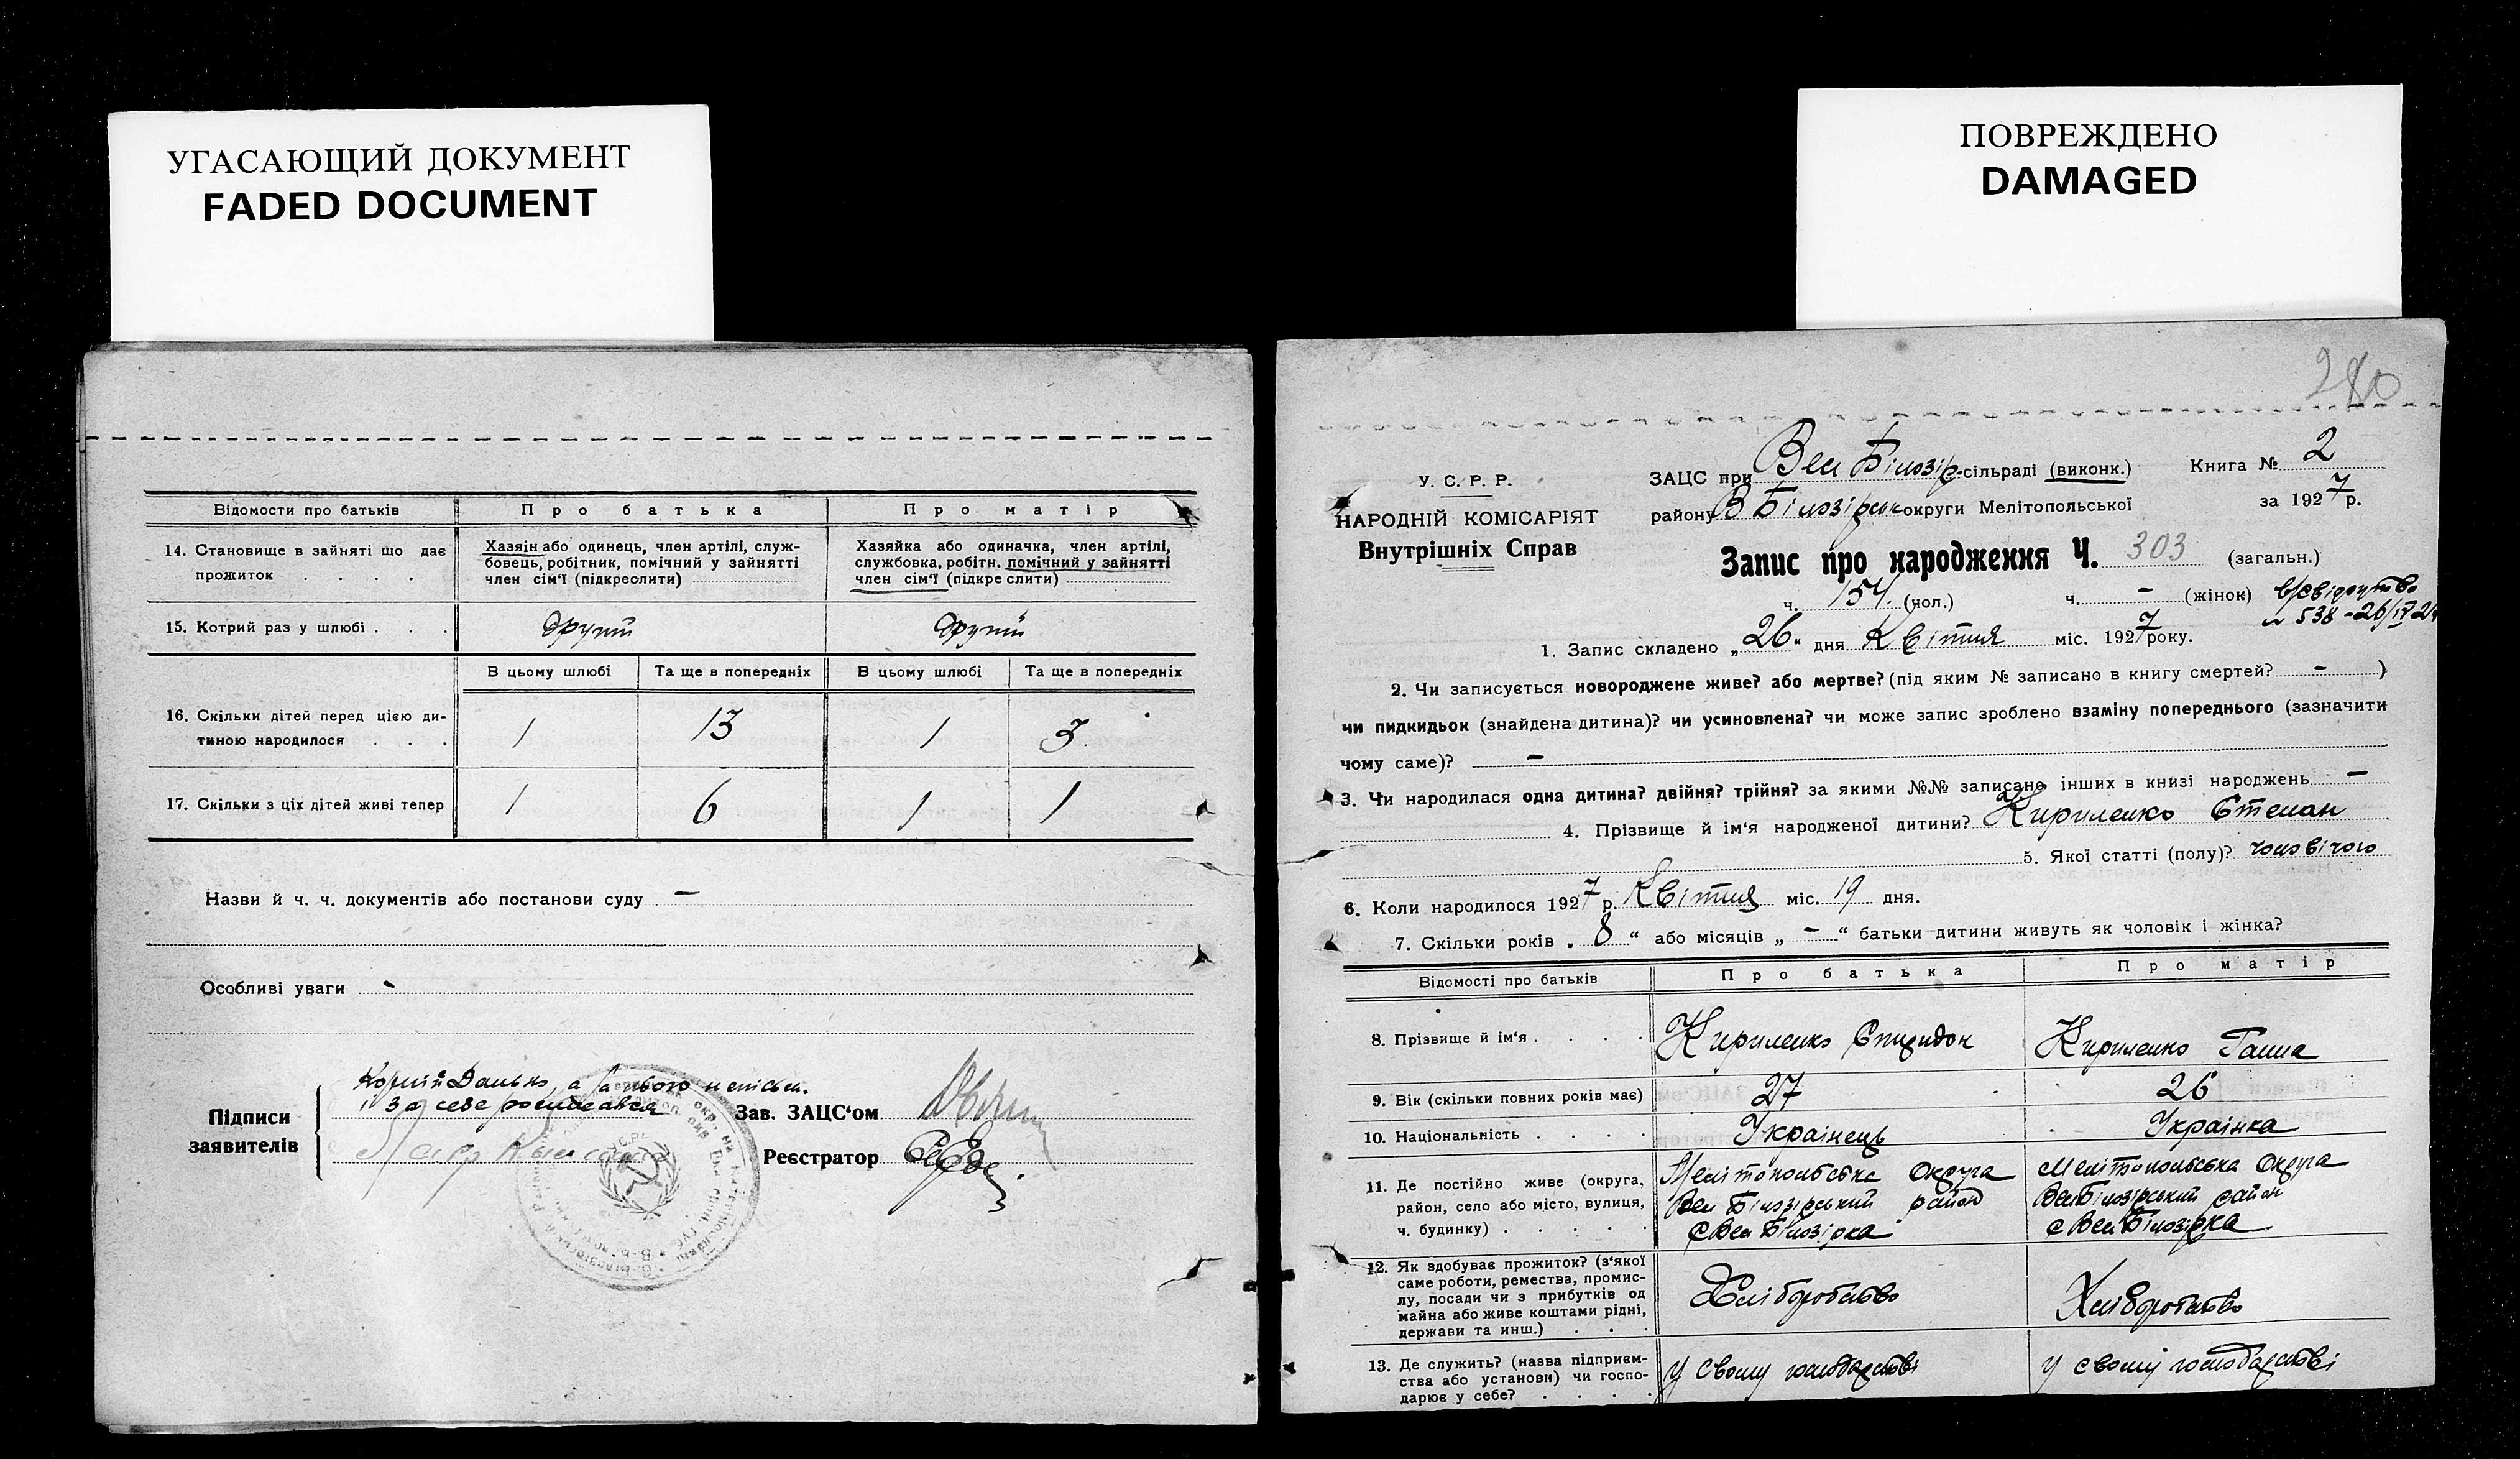 УГАСАЮЩИЙ ДОКУМЕНТ
FADED DOCUMENT
ПОВРЕЖДЕНО
DAMAGED
Відомости про батьків
Про батька
Про матір
14. Становище в зайняті що дає прожиток . . . .
Хазяін або одинець, член артілі, служ-
бовець, робітник, помічний у зайнятті
член сім'ї (підкреслити)
Хазяйка або одиначка, член артілі,
службовка, робітн. помічний у зайнятті
член сім'ї (підкреслити)
15. Котрий раз у шлюбі . . .
другий
другий
В цьому шлюбі
Та ще в попередніх
В цьому шлюбі
Та ще в попередніх
16. Скільки дітей перед цією ди-
тиною народилося . . .
1
13
1
3
17. Скільки з ціх дітей живі тепер
1
6
1
1
Назви й ч. ч. документів або постанови суду —
Особливі уваги -
Підписи
заявителів
Зав. ЗАЦС'ом
Реєстратор
280
У. С. Р. Р.
НАРОДНІЙ КОМІСАРІЯТ
Внутрішніх Справ
ЗАЦС при Вел Білозір-сільраді (виконк.)
Книга № 2
району В Білозірськ округи Мелітопольської
за 1927 р.
Запис про народження Ч. 303 (загальн.)
ч. 154 (чол.)
ч. - (жінок)
1. Запис складено „26“ дня Квітня міс. 1927 року.
2. Чи записується новороджене живе? або мертве? (під яким № записано в книгу смертей? - )
чи пидкидьок (знайдена дитина)? чи усиновлена? чи може запис зроблено взаміну попереднього (зазначити
чому саме)? -
3. Чи народилася одна дитина? двійня? трійня? за якими №№ записано інших в книзі народжень -
4. Прізвище й ім'я народженої дитини? Кириленко Степан
5. Якої статті (полу)? чоловічого
6. Коли народилося 1927 р. Квітня міс. 19 дня.
7. Скільки років „ 8 “ або місяців „ - “ батьки дитини живуть як чоловік і жінка?
Відомості про батьків
Про батька
Про матір
8. Прізвище й ім'я . . . .
Кириленко Спиридон
Кириленко Ганна
9. Вік (скільки повних років має)
27
26
10. Національність . . . .
Українець
Українка
11. Де постійно живе (округа,
район, село або місто, вулиця,
ч. будинку) . . . .
Мелітопольська округа
Вел Білозірський район
с Вел Білозірка
Мелітопольська округа
Вел Білозірський район
с Вел Білозірка
12. Як здобуває прожиток? (з'якої
саме роботи, ремества, промис-
лу, посади чи з прибутків од
майна або живе коштами рідні,
держави та инш.) . . .
Хліборобство
Хліборобство
13. Де служить? (назва підприєм-
ства або установи) чи госпо-
дарює у себе? . . . .
у свому господарстві
у свому господарстві